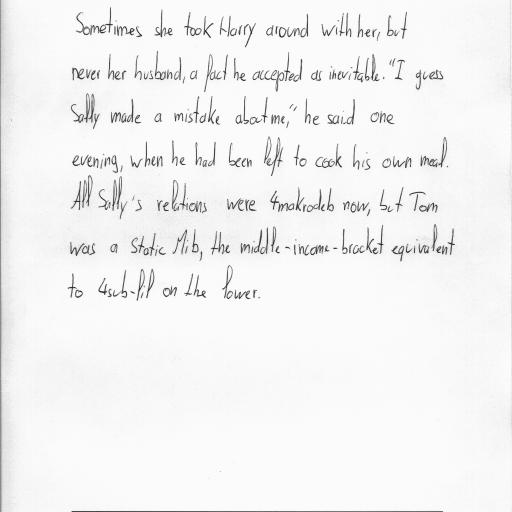 Sometimes she took Harry around with her, but
never her husband, a fact he accepted as inevitable. "I guess
Sally made a mistake about me," he said one
evening, when he had been left to cook his own meal.
All Sally's relations were 4makrodeb now, but Tom
was a Static Mib, the middle-income-bracket equivalent
to 4sub-Pip on the lower.